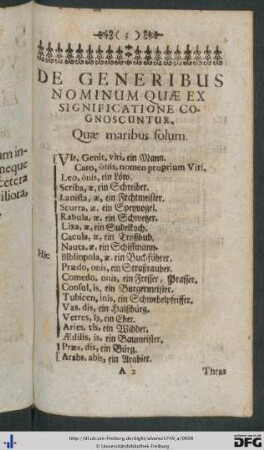 ( 3 )
DE GENERIBUS
NOMINUM QUÆ EX
SIGNIFICATIONE CO-
GNOSCUNTUR.
Quæ maribus solum.
VIr, Genit, viri, ein Mann.
Cato, ónis, nomen proprium Viri.
Leo, ónis, ein Löw.
Scriba, æ, ein Schreiber.
Lanista, æ, ein Fechtmeister.
Scurra, æ, ein Speyvogel.
Rabula, æ, ein Schwetzer.
Lixa, æ, ein Sudelkoch.
Cacula, æ, ein Troßbub.
Nauta, æ, ein Schiffmann.
Hic
Bibliopola, æ, ein Buchführer.
Prædo, onis, ein Straßrauber.
Comedo, onis, ein Fresser, Prasser.
Consul, is, ein Burgermeister.
Tubicen, inis, ein
Vas, dis, ein Halßbürg.
Verres, is, ein Eber.
Aries, tis, ein Widder.
Ædilis, is, ein Baumeister.
Præs, dis, ein Bürg.
Arabs, abis, ein Arabier.
A 2
um in-
neque
cetera
iliora,
http://dl.ub.uni-freiburg.de/diglit/
© Universitätsbibliothek Freiburg
gefördert durch die
DFG